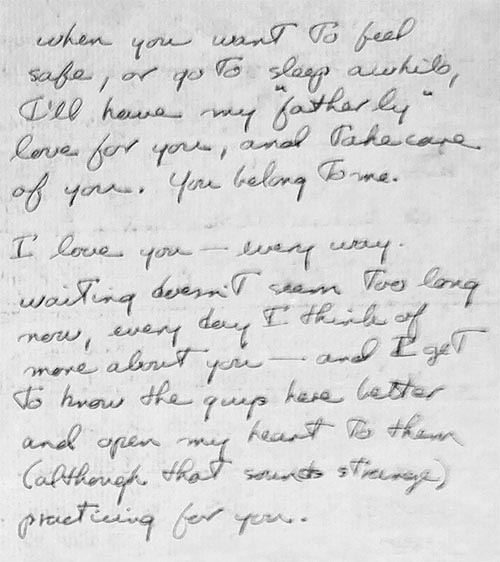 when you want to feel
safe, or go to sleep awhile,
I'll have my "fatherly"
love for you, and take care
of you. You belong to me.
I love you — every way.
waiting doesn't seem too long
now, every day I think of
more about you — and I get
to know the guys here better
and open my heart to them
(although that sounds strange)
practicing for you.